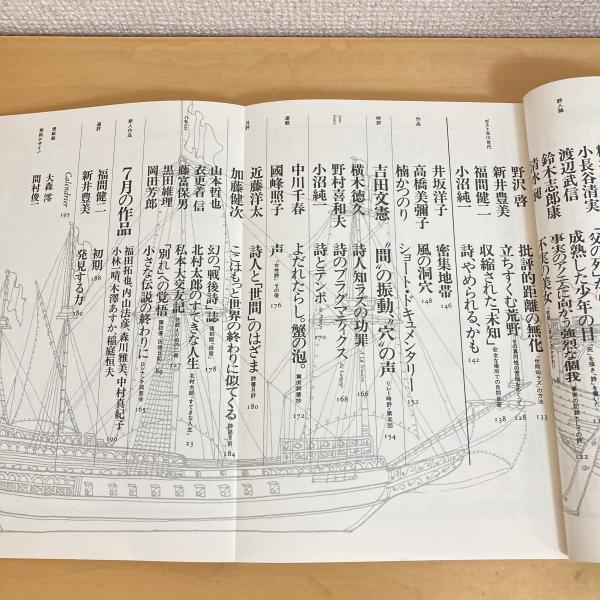 詩人論
小長谷清実
父の死な
渡辺武信
成熟した少年の日
鈴木志郎康
事実のアニミに向かう強烈な個我
122
清水昶
不実の美女へ
野沢啓
批評的距離の無化
133
新井豊美
立ちすくむ荒野
128
福間健二
収縮された「未知」
小沼純一
詩、やめられるかも
142
作品
井坂洋子
密集地帯
146
高橋美彌子
風の洞穴
148
楠かつのり
ショート・ドキュメンタリー
152
時評
吉田文憲
“間”の振動、“穴”の声
154
横木徳久
詩人知ラズの功罪
166
野村喜和夫
詩のプラグマティクス
168
小沼純一
詩とテンポ
170
連載
中川千春
よだれたらし。蟹の泡。
172
國峰照子
声
176
月評
近藤洋太
詩人と「世間」のはざま
詩書月評
180
加藤健次
ここはもっと世界の終わりに似てくる
詩誌月評
184
山本哲也
幻の「戦後詩」誌
178
衣更着信
北村太郎のすてきな人生
23
藤富保男
私本大交友記
黒田維理
「別れ」への覚悟
189
岡田芳郎
小さな伝説の終わりに
165
新人作品
7月の作品
福田拓也、内山法彦、森川雅美、中村真紀子
小林一晴、木澤あすか、稲庭恒夫
190
選評
福間健二
初期
188
新井豊美
発見する力
189
Calendrier
195
表紙絵
大森澪
表紙デザイン
間村俊一